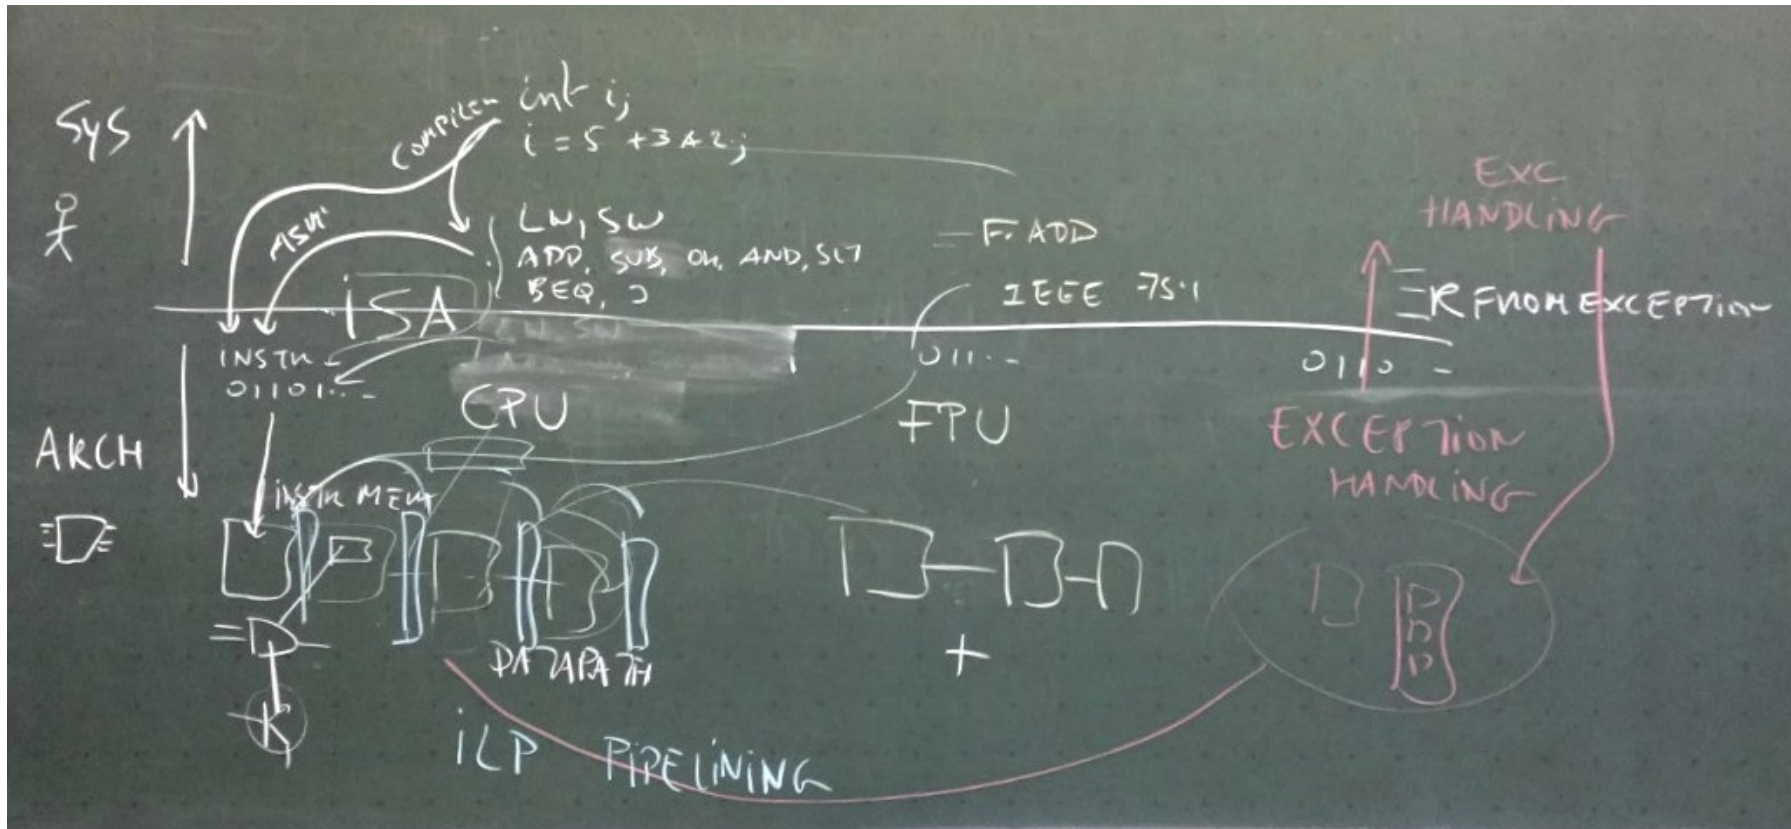 SYS
COMPILER
int i;
i = 5 + 3 * 2;
ASM
LW, SW
ADD, SUB, OR, AND, SLT
BEQ, J
F. ADD
IEEE 754
EXC
HANDLING
R FROM EXCEPTION
ISA
INSTR
01101...
011...
0110...
CPU
FPU
EXCEPTION
HANDLING
ARCH
INSTR MEM
DATAPATH
+
ILP PIPELINING